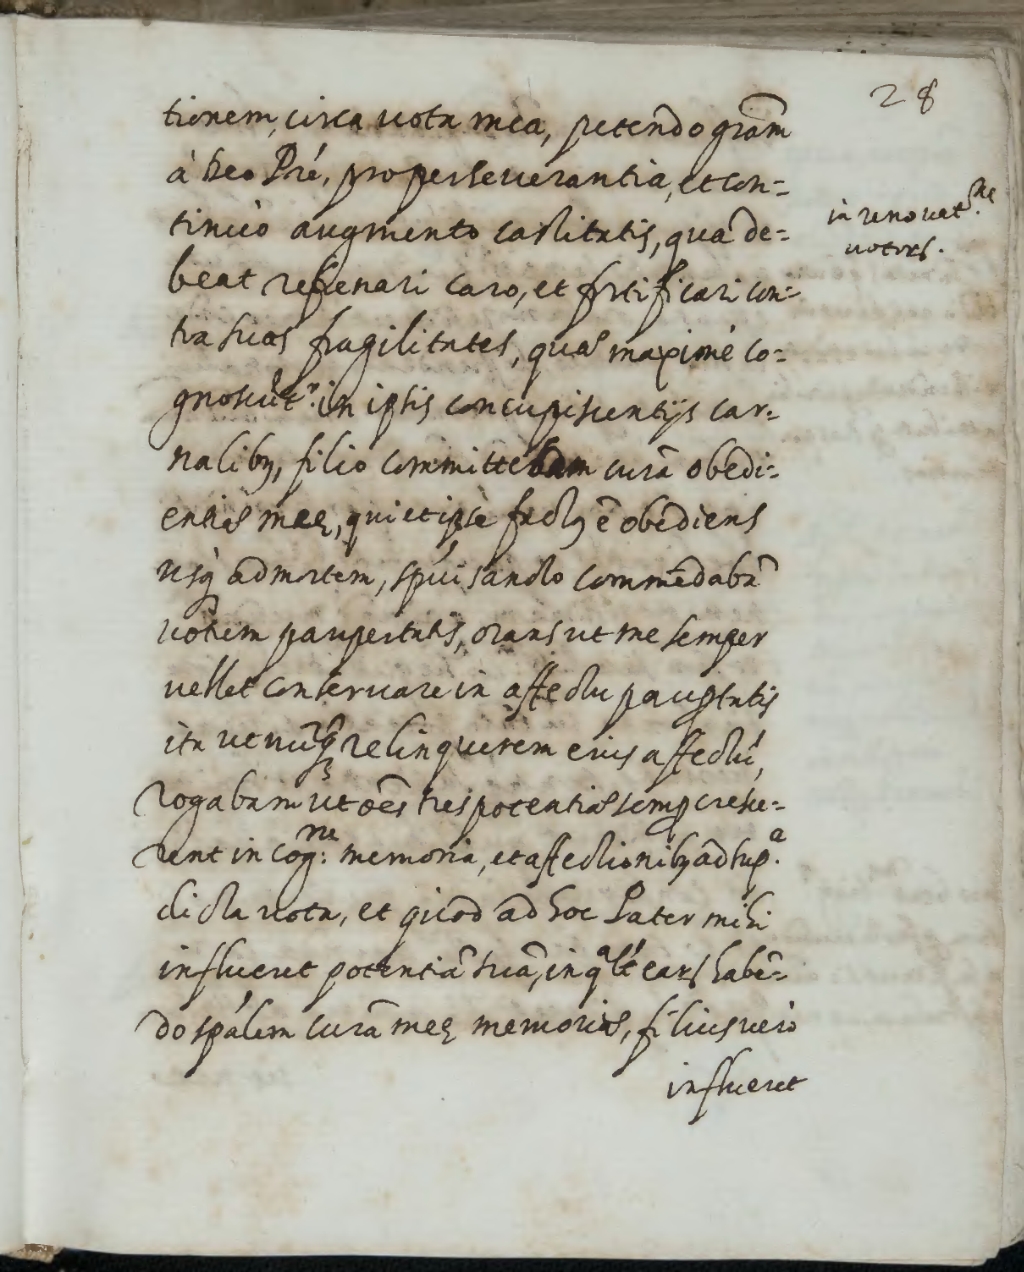 28
tionem, circa uota mea, petendo grãm
à Deo Pré, pro perseuerantia, et con-
tinuò augmento castitatis, qua de-
beat refrenari caro, et fortificari con-
tra suas fragilitates, quas maximè co-
gnoscũt.r in ipsis concupiscentijs car-
nalibꝰ, filio committebam curã obedi-
entiæ meę, qui et ipse factꝰ ẽ obediens
usq̀ ad mortem, spũi sancto commẽdabã
uotum paupertatis, orans ut me semper
uellet conseruare in affectu paup̱tatis
ita ut nũq̃ relinquerem eius affectũ,
rogabam ut oẽs tres potentias semp̱ creſce-
rent in cog:ne memoria, et affectionibꝰ ad sup.a
dicta uota, et quod ad hoc Pater mihi
influeret potentiã suã, in q.alẽ earꝝ habẽ-
do spãlem curã meę memoriæ, filius uerò
influeret
in renouat.ne
uotorꝝ.